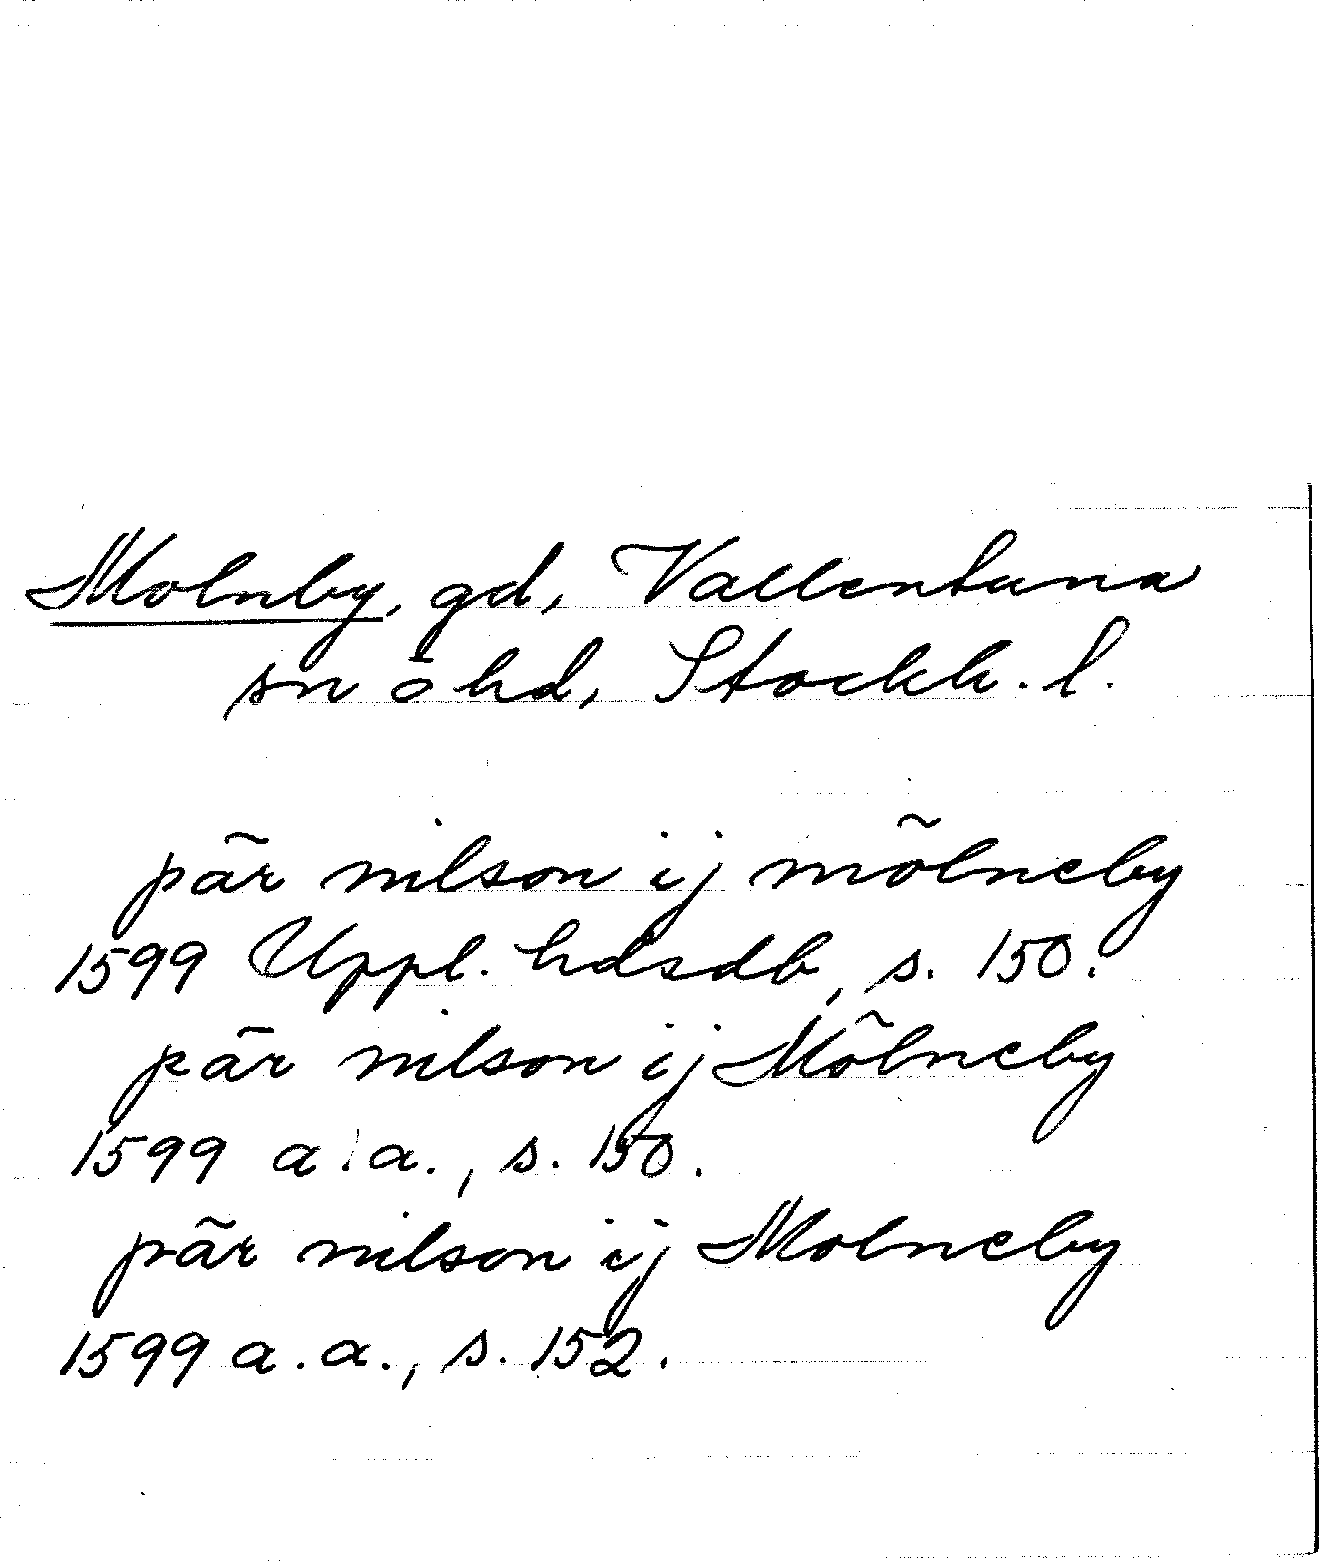 Molnby, gd, Vallentuna
sn o hd, Stockh. l.
pär nilson ij mölneby
1599 Uppl. hdsdb, s. 150.
pär nilson ij Mölneby
1599 a.a., s. 150.
pär nilson ij Molneby
1599 a.a., s. 152.